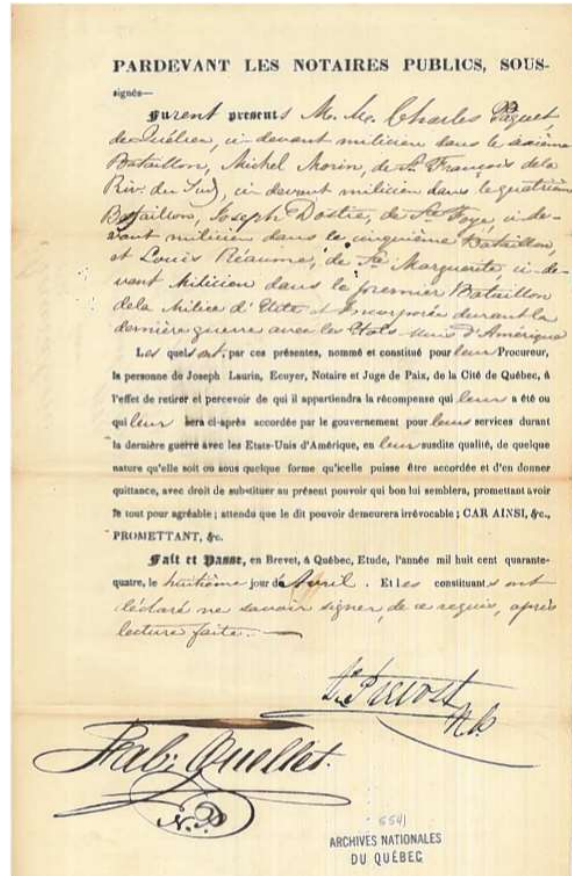 PARDEVANT LES NOTAIRES PUBLICS, SOUS-
signés—
Furent presents M. M. Charles Paquet,
de Québec, ci-devant milicien dans le sixième
Bataillon, Michel Morin, de St. François de la
Riv. du Sud, ci-devant milicien dans le quatrième
Bataillon, Joseph Dostie, de Ste Foye, ci-de-
vant milicien dans le cinquième Bataillon,
et Louis Réaume, de Ste Marguerite, ci-de-
vant Milicien dans le premier Bataillon
de la Milice d'Elite et Incorporée durant la
dernière guerre avec les Etats-Unis d'Amérique
Les quels ont, par ces présentes, nommé et constitué pour leur Procureur,
la personne de Joseph Laurin, Ecuyer, Notaire et Juge de Paix, de la Cité de Québec, à
l'effet de retirer et percevoir de qui il appartiendra la récompense qui leur a été ou
qui leur sera ci-après accordée par le gouvernement pour leurs services durant
la dernière guerre avec les Etats-Unis d'Amérique, en leur susdite qualité, de quelque
nature qu'elle soit ou sous quelque forme qu'icelle puisse être accordée et d'en donner
quittance, avec droit de substituer au présent pouvoir qui bon lui semblera, promettant avoir
le tout pour agréable ; attendu que le dit pouvoir demeurera irrévocable ; CAR AINSI, &c.,
PROMETTANT, &c.
Fait et Passé, en Brevet, à Québec, Etude, l'année mil huit cent quarante-
quatre, le huitième jour de Avril. Et les constituants ont
déclaré ne savoir signer, de ce requis, après
lecture faite.—
Prevost
N.P.
Fab: Ouellet.
N.P.
5541
ARCHIVES NATIONALES
DU QUÉBEC